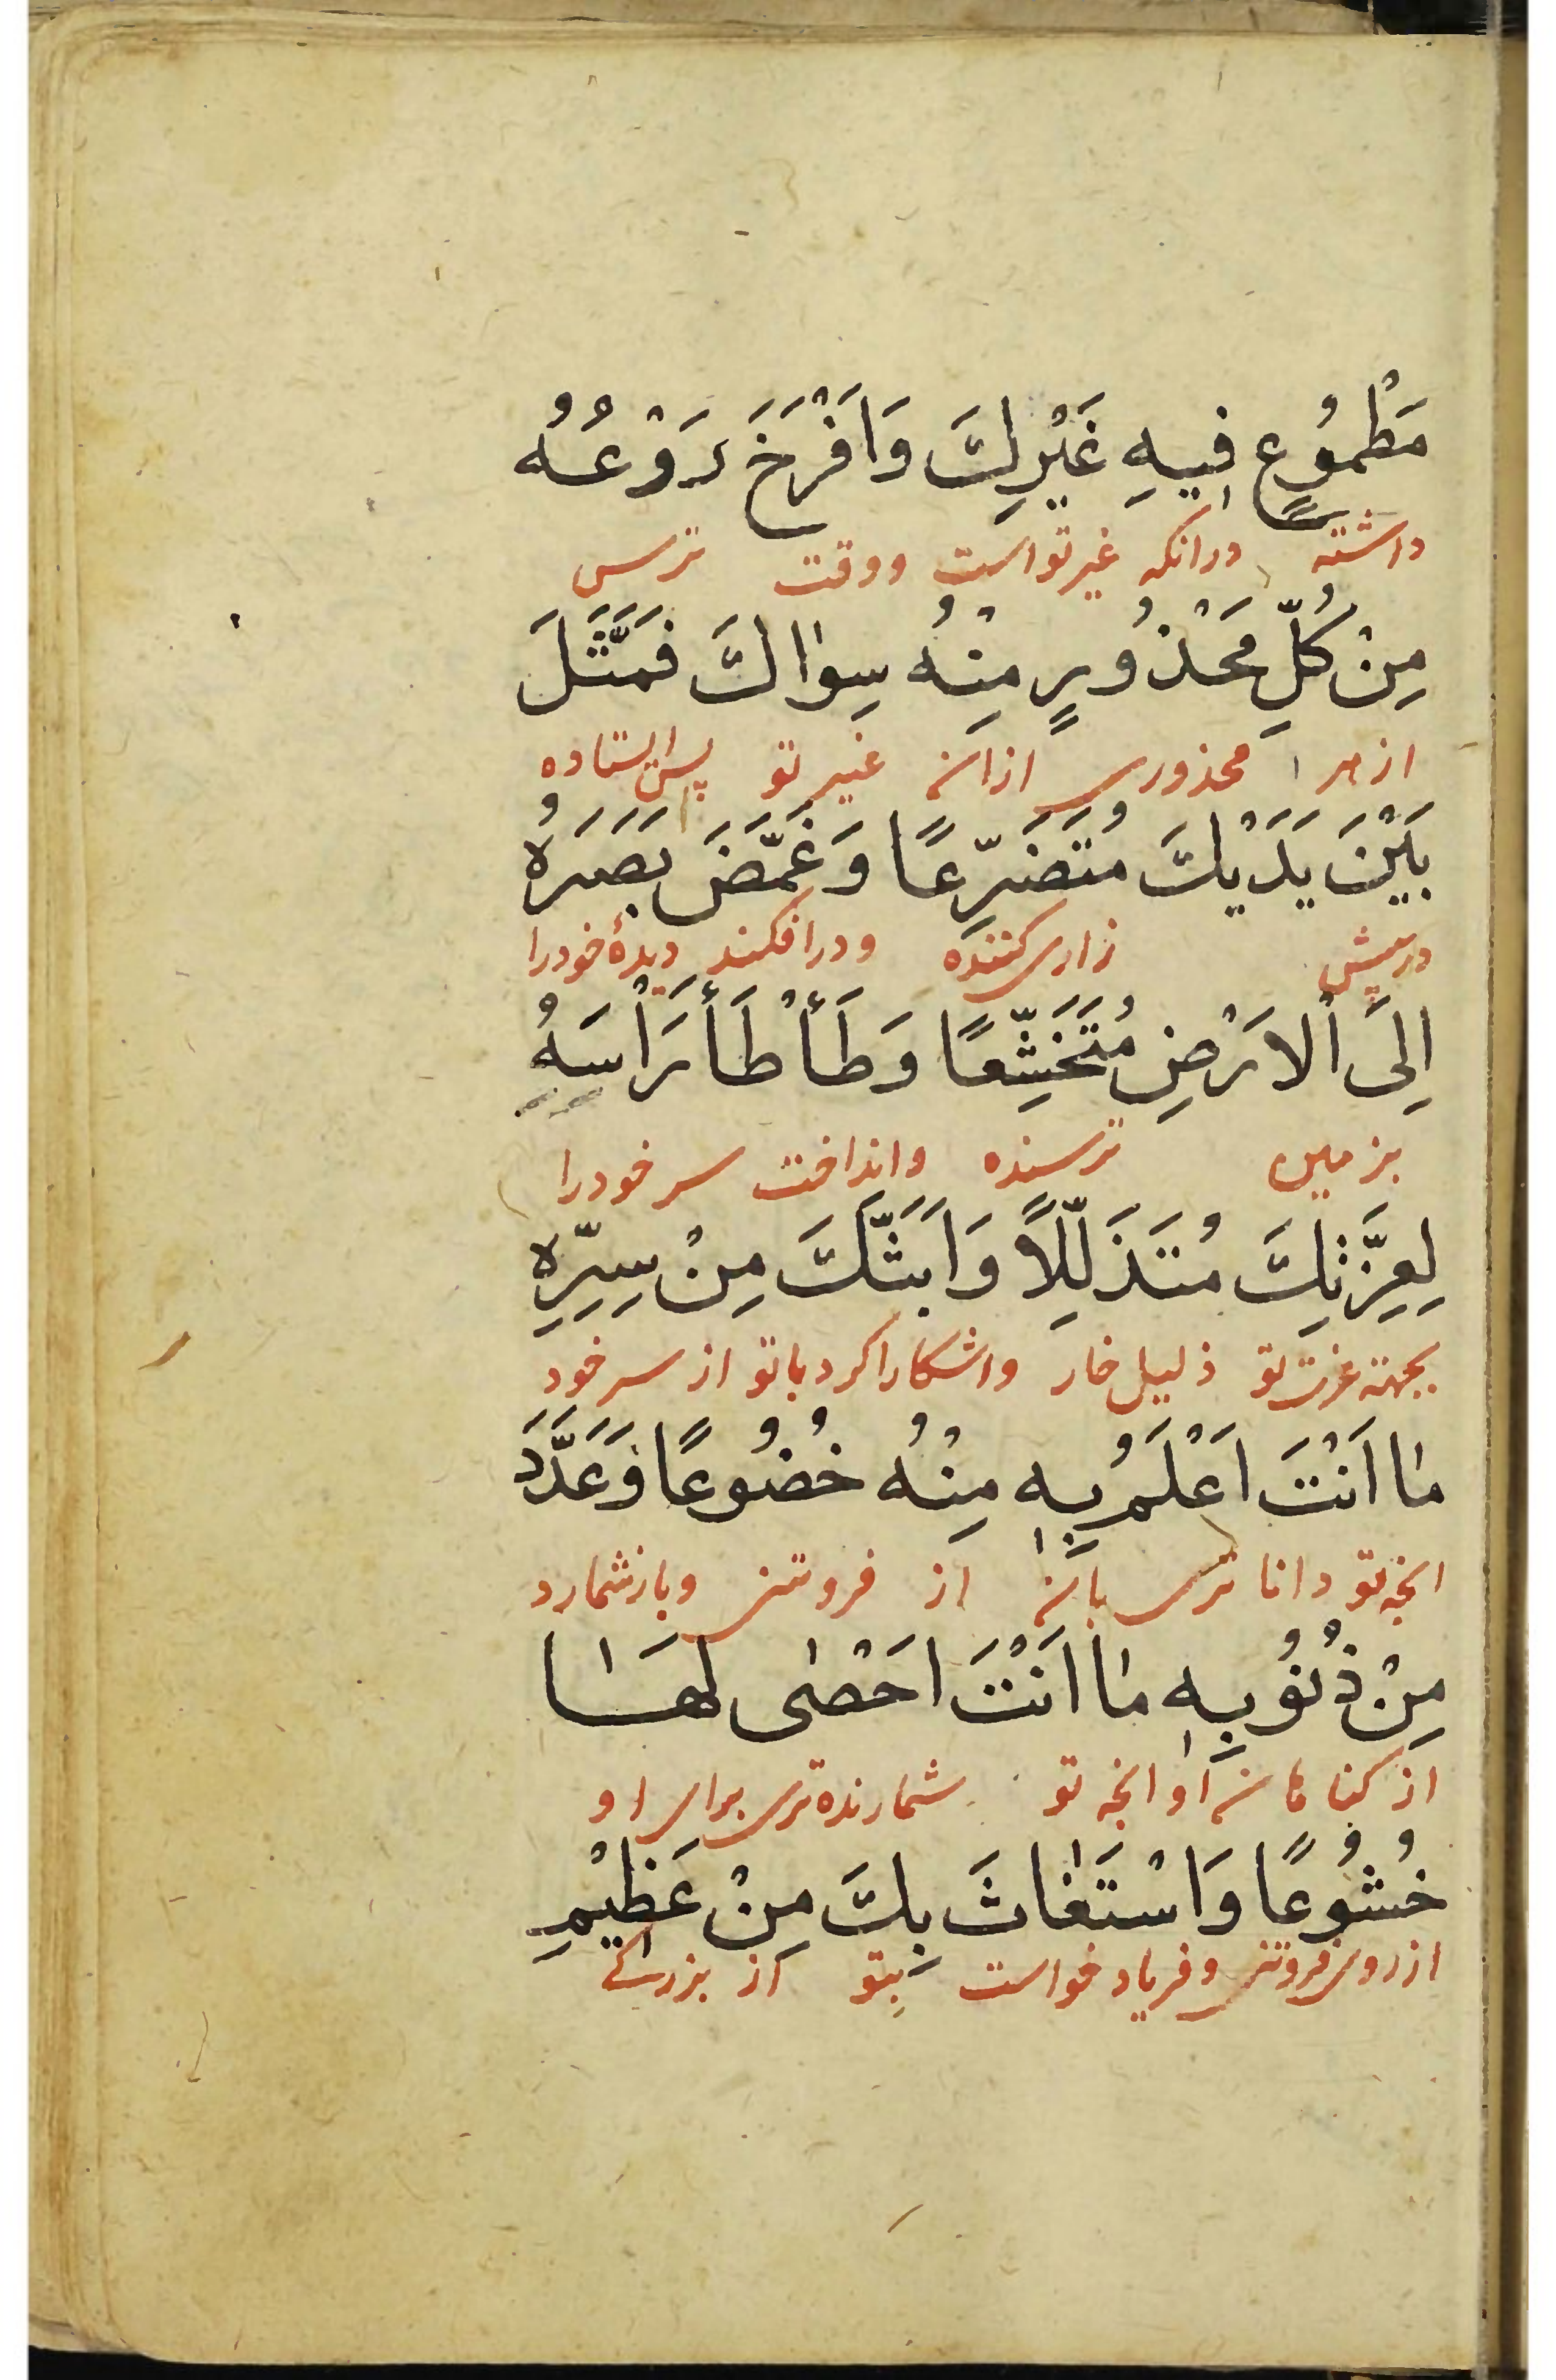 مَطْمُوعٍ فِيهِ غَيْرِكَ وَاَفْرَخَ رَوْعُهُ
داشته درانکه غیر تو است ووقت ترس
مِنْ كُلِّ مَحْذُورٍ مِنْهُ سِوٰاكَ فَمَثَّلَ
از هر محذوری ازان غیر تو پس ایستاده
بَيْنَ يَدَيْكَ مُتَضَرِّعًا وَغَمَّضَ بَصَرَهُ
در پیش زاری کننده ودر افکند دیدۀ خودرا
اِلَى اْلاَرْضِ مُتَخَشِّعًا وَطَأْطَأَ رَاْسَهُ
بزمین ترسنده وانداخت سر خودرا
لِعِزَّتِكَ مُتَذَلِّلًا وَاَبَثَّكَ مِنْ سِرِّهِ
بجهته عزت تو ذلیل خار واشکارا کرد باتو از سر خود
مٰا اَنْتَ اَعْلَمُ بِهِ مِنْهُ خُضُوعًا وَعَدَّدَ
انچه تو دانا تری بان از فروتنی وباز شمارد
مِنْ ذُنُوبِهِ مٰا اَنْتَ اَحْصٰى لَهٰا
از کناهان او انچه تو شمارنده تری برای او
خُشُوعًا وَاسْتَغٰاثَ بِكَ مِنْ عَظِيْمِ
از روی فروتنی وفریاد خواست بتو از بزرکے